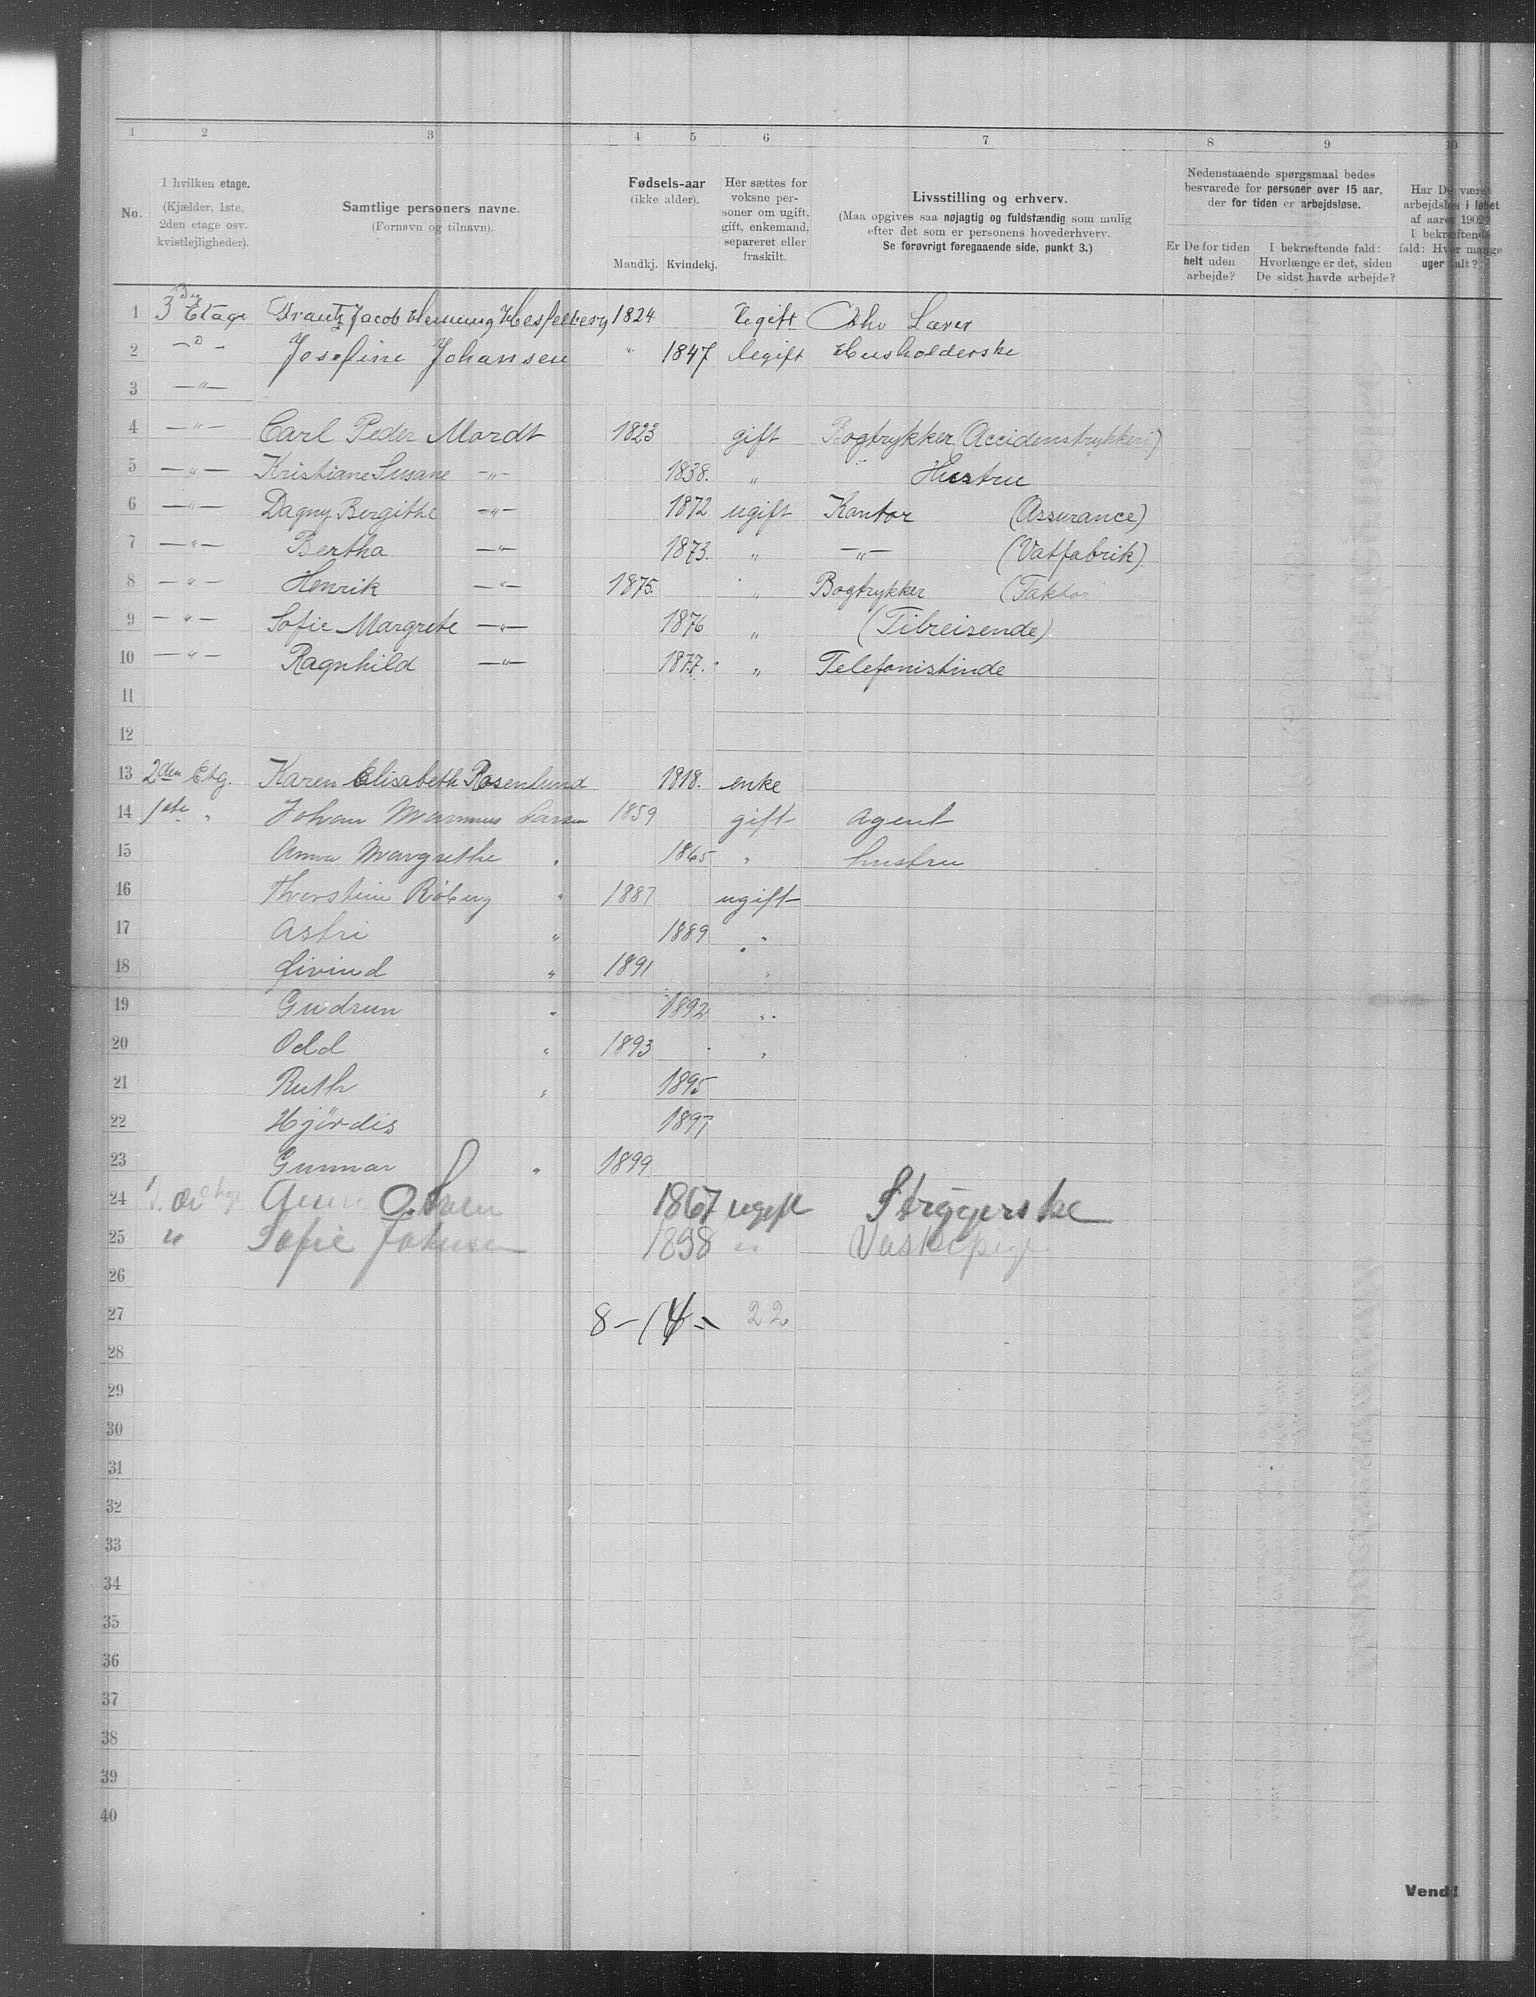 1 2 3 4 5 6 7 8 9 10
No.
I hvilken etage.
(Kjælder, 1ste,
2den etage osv.
kvistlejligheder).
Samtlige personers navne.
(Fornavn og tilnavn).
Fødsels-aar
(ikke alder).
Mandkj. Kvindekj.
Her sættes for
voksne per-
soner om ugift,
gift, enkemand,
separeret eller
fraskilt.
Livsstilling og erhverv.
(Maa opgives saa nøjagtig og fuldstændig som mulig
efter det som er personens hovederhverv.
Se forøvrigt foregaaende side, punkt 3.)
Nedenstaaende spørgsmaal bedes
besvarede for personer over 15 aar,
der for tiden er arbejdsløse.
Er De for tiden
helt uden
arbejde?
I bekræftende fald:
Hvorlænge er det, siden
De sidst havde arbejde?
Har De været
arbejdsløs i løbet
af aaret 1902?
I bekræftende
fald: Hvor mange
uger ialt?
1 3die Etage Frantz Jacob Henning Hesselberg 1824 Ugift Lærer
2 — " — Josefine Johansen " 1847 Ugift Husholderske
3 — " —
4 — " — Carl Peder Mordt 1823 gift Bogtrykker (Accidenstrykkeri)
5 — " — Kristiane Susane — " — 1838. " Hustru
6 — " — Dagny Bergithe — " — 1872 ugift Kontor (Assurance)
7 — " — Bertha — " — 1873. " — " — (Vatfabrik)
8 — " — Henrik — " — 1875. " Bogtrykker (Faktor
9 — " — Sofie Margrete — " — 1876 " (Tilreisende)
10 — " — Ragnhild — " — 1877. " Telefonistinde
11
12
13 2den Etg. Karen Elisabeth Rosenlund 1818. enke
14 1ste " Johan Marinius Larsen 1859 gift Agent
15 Anna Margrethe " 1865 " hustru
16 Thorstein Röberg " 1887 ugift
17 Astri " 1889 "
18 Øivind " 1891 "
19 Gudrun " 1892 "
20 Odd " 1893 "
21 Ruth " 1895
22 Hjördis 1897
23 Gunnar " 1899
24 Anna Olsen 1867 ugift Strygerske
25 " Sofie Johnsen 1898 " Vaskepige
26
27 8 – 14 – 22
28
29
30
31
32
33
34
35
36
37
38
39
40
Vend!